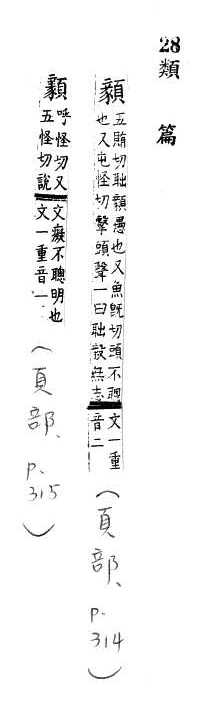 28 類篇
顡
五賄切聉顡愚也又魚旣切頭不聰
也又屯怪切擊頭聲一曰聉設無志
文一重
音二
(頁部、p.314)
顡
呼怪切又
五怪切說
文癡不聰明也
文一重音一
(頁部、p.315)